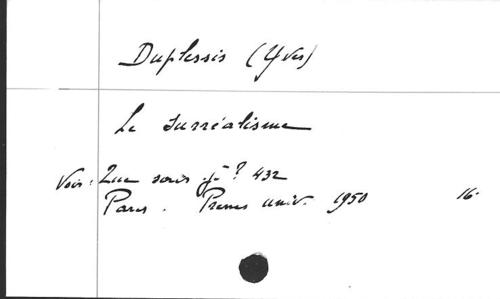 Duplessis (Yves)
Le Surréalisme
Voir: Que sais-je? 432
Paris. Presses univ. 1950 16-